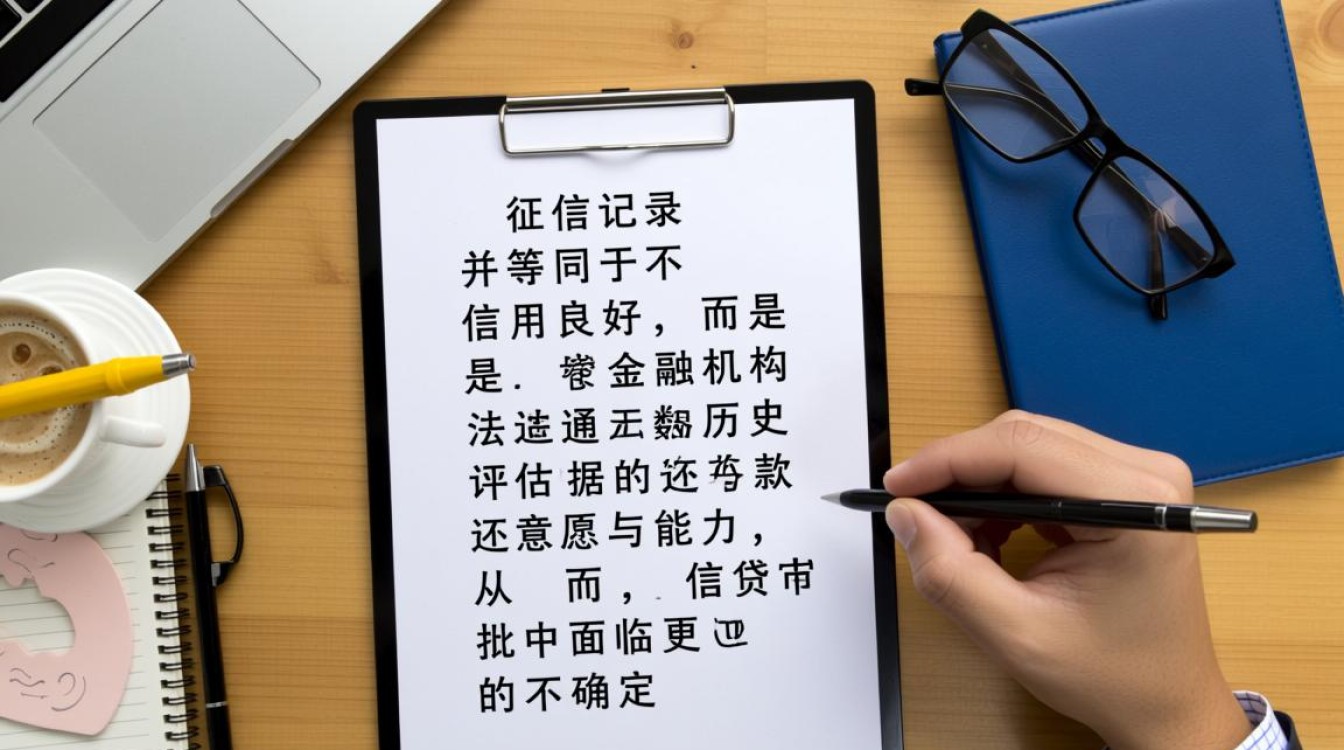 征信记录
并等同于不
信用良好，而是
是. 金融机构
法通历史
评估据的还款
还意愿与能力，
从 而，. 信贷市
批中面临更
的不确定